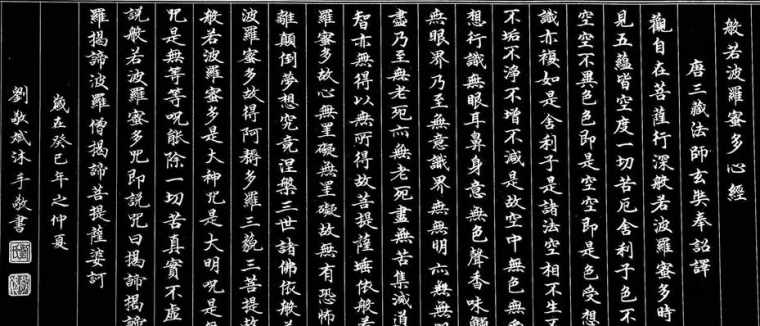 般若波羅蜜多心經
唐三藏法師玄奘奉詔譯
觀自在菩薩行深般若波羅蜜多時
見五蘊皆空度一切苦厄舍利子色不
空空不異色色即是空空即是色受想
識亦複如是舍利子是諸法空相不生不
不垢不淨不增不減是故空中無色無
想行識無眼耳鼻身意無色聲香味觸
無眼界乃至無意識界無無明亦無無明
盡乃至無老死亦無老死盡無苦集滅道
智亦無得以無所得故菩提薩埵依般若
羅蜜多故心無罣礙無罣礙故無有恐怖
離顛倒夢想究竟涅槃三世諸佛依般若
波羅蜜多故得阿耨多羅三藐三菩提故
般若波羅蜜多是大神咒是大明咒是
咒是無等等咒能除一切苦真實不虛
說般若波羅蜜多咒即說咒曰揭諦揭諦
羅揭諦波羅僧揭諦菩提薩婆訶
歲在癸巳年之仲夏
劉敬斌沐手敬書